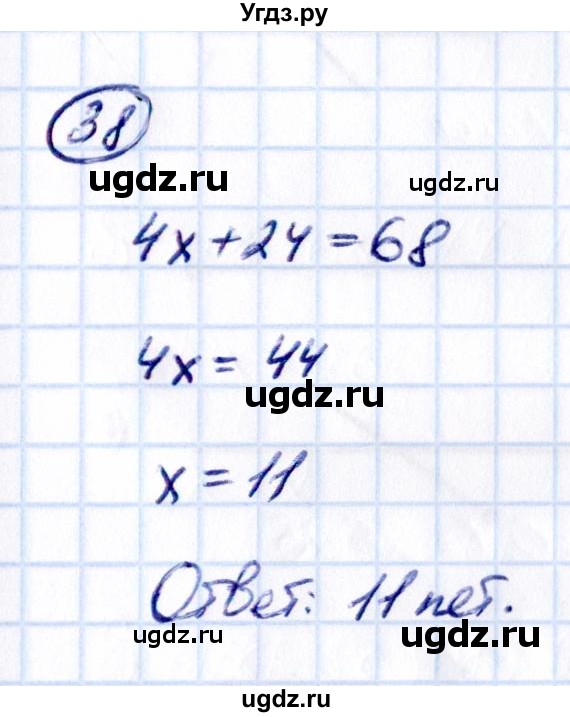 Угдз.ру
38
ugdz.ru
ugdz.ru
4x+24=68
4x=44
ugdz.ru
x=11
Ответ: 11 лет.
ugdz.ru
ugdz.ru
ugdz.ru